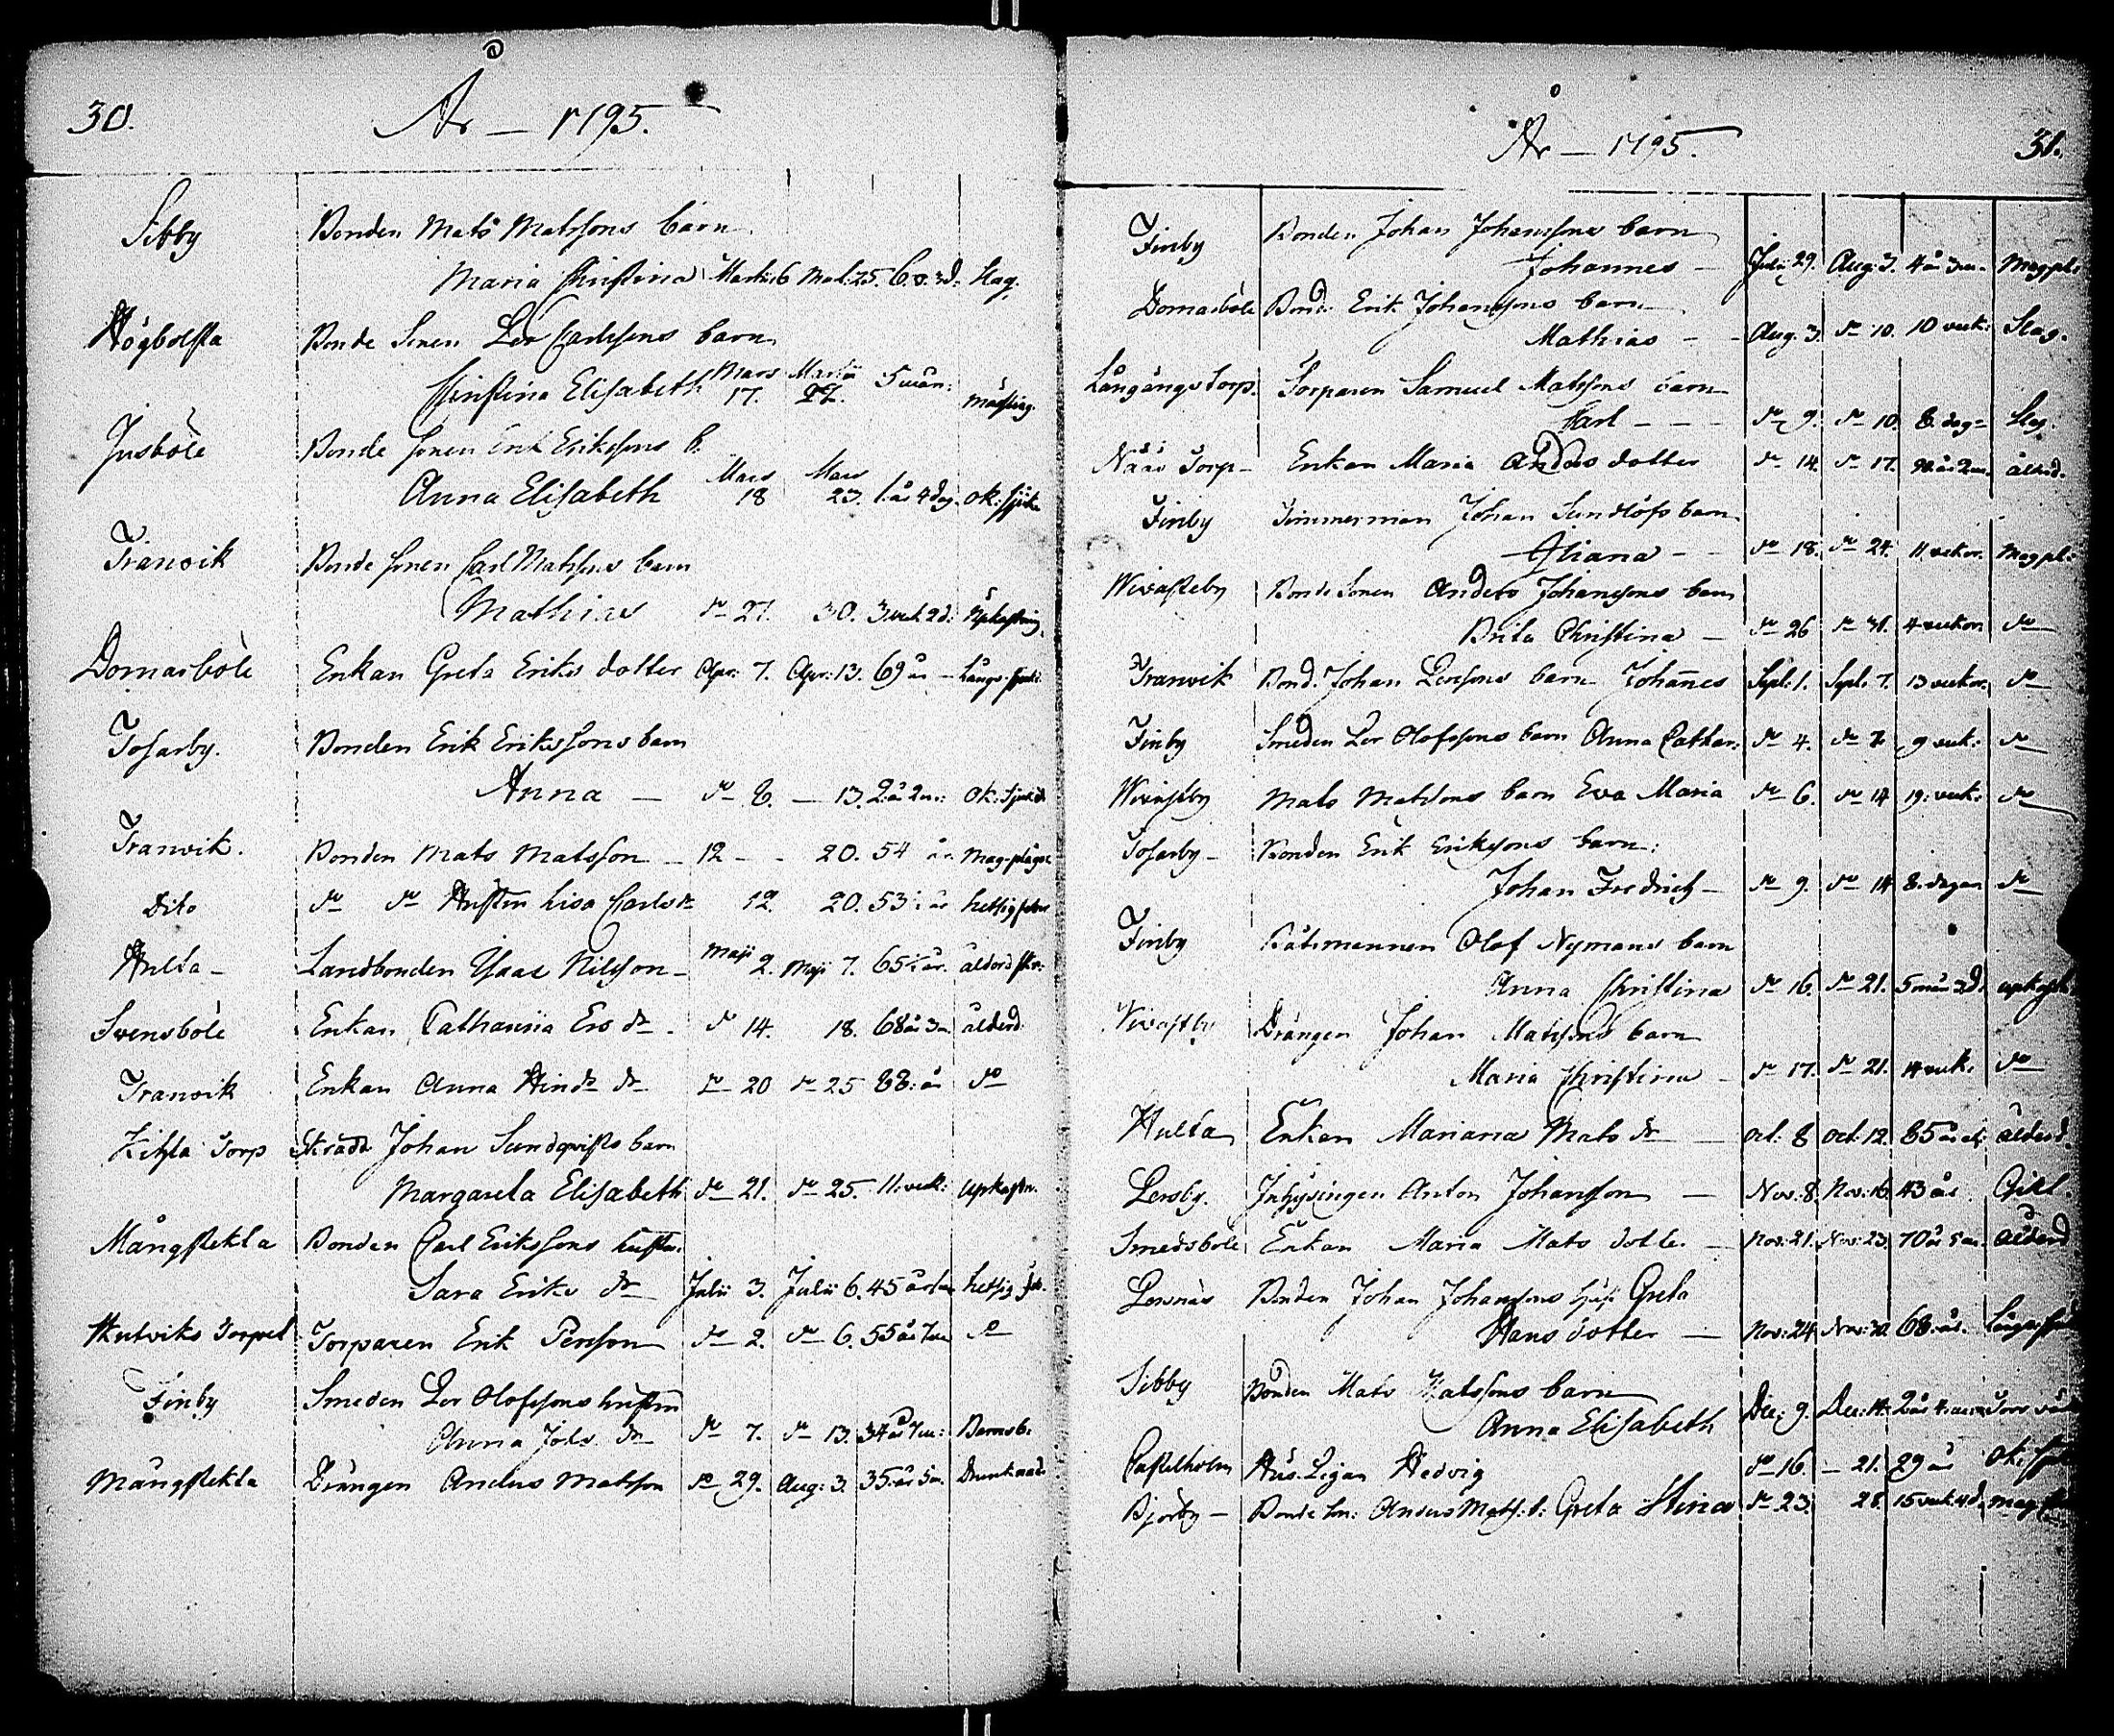 30.
År — 1795.
Sibby Bonden Mats Matssons barn
Maria Christina Martii 6 25. 6 v. 3 d: Slag.
Högbolsta Bonde Sonen Per Carlssons barn
Christina Elisabeth Mars 17. Martii 22. 5 mån: mässling.
Jusböle Bonde sonen Erik Erikssons b.
Anna Elisabeth Mars 18 Mars 23. 1. år 4 dag. ok: sjuk
Tranvik Bonde sonen Carl Matssons barn
Mathias do 27. 30. 3 vek. 2 d: Upkastning
Domarböle Enkan Greta Eriks dotter Apr: 7. Apr: 13. 69 år —
Tosarby. Bonden Erik Erikssons barn
Anna — do 8. — 13. 2. år 2 m: ok: sjukd.
Tranvik. Bonden Mats Matsson — 12 — - 20. 54 år Mag-plågor
Dito do do Hustru Lisa Carls dr 12. 20. 53 1/2 år hettig feber
Hulta — Landbonden Isaac Nilsson — Maji 2. Maji 7. 65 1/2 år.
Svensböle Enkan Catharina Ers dr. do 14. 18. 68 år 3 m. ålderd.
Tranvik Enkan Anna Hindr dr do 20 do 25 88: år do
Torp Skrädd Johan Sundqvists barn
Margareta Elisabeth do 21. do 25. 11. vek: Upkastn.
Mångstekta Bonden Carl Erikssons hustru
Sara Eriks dr Julii 3. Julii 6. 45 år hettig feb.
Torpet Torparen Erik Persson do 2. do 6. 55 år 7 m do
Finby Smeden Per Olofssons hustru
Anna Johs. dr do 7. do 13. 34 år 7 m: Barnsb.
Mångstekta Drängen Anders Matsson do 29. Aug: 3. 35. år 5 m. Drunknad.
År — 1795.
31.
Finby Bonden Johan Johanssons barn
Johannes — Julii 29. Aug: 3. 4 år 3 m. Magpl:
Domarböle Bond: Erik Johanssons barn
Mathias — - Aug. 3. do 10. 10 vek: Slag.
Långängs Torp. Torparen Samuel Matssons barn
Karl - - - do 9. do 10. 8. dag- Slag.
Näss Torp — Enkan Maria Anders dotter do 14. do 17. ålderd.
Finby Timmerman Johan Sundlöfs barn
- do 18. do 24. 11. vekor. Magpl:
Wivasteby Bonde Sonen Anders Johanssons barn
Brita Christina — do 26 do 31. 4 vekor. do
Tranvik Bond. Johan Perssons barn Johannes Sept: 1. Sept: 7. 13 vekor. do
Finby Smeden Per Olofssons barn Anna Cathar: do 4. do 7. 9 vek: do
Wivasteby Mats Matssons barn Eva Maria do 6. do 14 19: vek: do
Tosarby — Bonden Erik Erikssons barn:
Johan Fredrich — do 9. do 14 8. dagar do
Finby Båtsmannen Olof Nymans barn
Anna Christina do 16. do 21. 5 mån 3 d. upkast.
Wivastby Drängen Johan Matssons barn
Maria Christina — do 17. do 21. 14 vek: do
Hulta Enkan Mariana Mats dr — Oct: 8 Oct: 12. 85 år ålderd.
Persby. Inhysingen Anton Johansson — Nov: 8. Nov: 16. 43 år.
Smedsböle Enkan Maria Mats dotter — Nov: 21. Nov: 23. 70 år 5 m. ålderd
Persnäs Bonden Johan Johanssons Greta
Hans dotter — Nov: 24. Nov: 30. 68. år.
Sibby Bonden Mats Matssons barn
Anna Elisabeth Dec; 9. Dec: 14. 2 år
Castelholm Hus. Pigan Hedvig do 16. — 21. 29 år ok:
Björby — Bonde Son: Anders Mats: b: Greta Stina do 23. 28 15 vek 4 d. mag